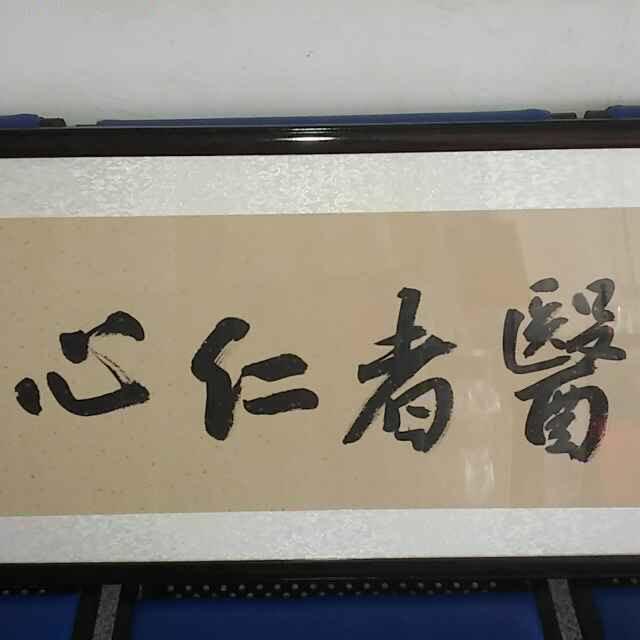 醫者仁心